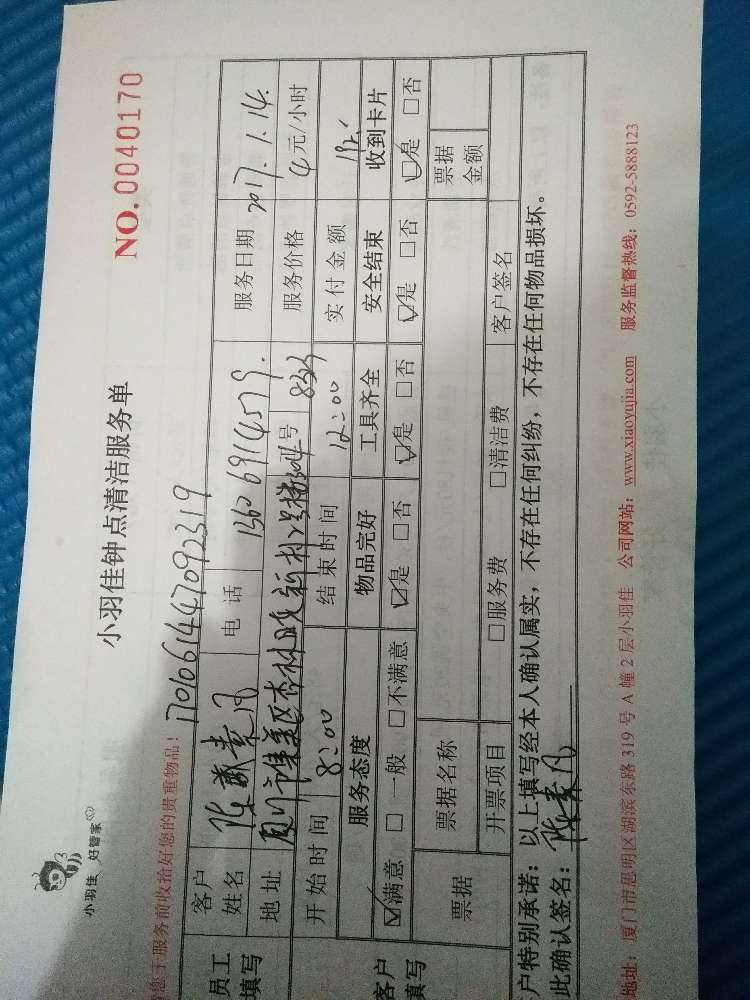 小羽佳 好管家
小羽佳钟点清洁服务单
NO. 0040170
您于服务前收拾好您的贵重物品！
1701061447092319
员工填写
客户姓名 陈 素凡 电话 13606914579. 服务日期 2017.1.14.
地址 厦门市集美区杏林 新村 号 服务价格 4元/小时
开始时间 8:00 结束时间 12:00 实付金额
客户填写
服务态度 物品完好 工具齐全 安全结束 收到卡片
☑满意 □一般 □不满意 ☑是 □否 ☑是 □否 ☑是 □否 ☑是 □否
票据 票据名称 票据金额
开票项目 □服务费 □清洁费 客户签名
户特别承诺：以上填写经本人确认属实，不存在任何纠纷，不存在任何物品损坏。
此确认签名：陈素凡
地址：厦门市思明区湖滨东路 319 号 A 幢 2 层小羽佳 公司网站：www.xiaoyujia.com 服务监督热线：0592-5888123